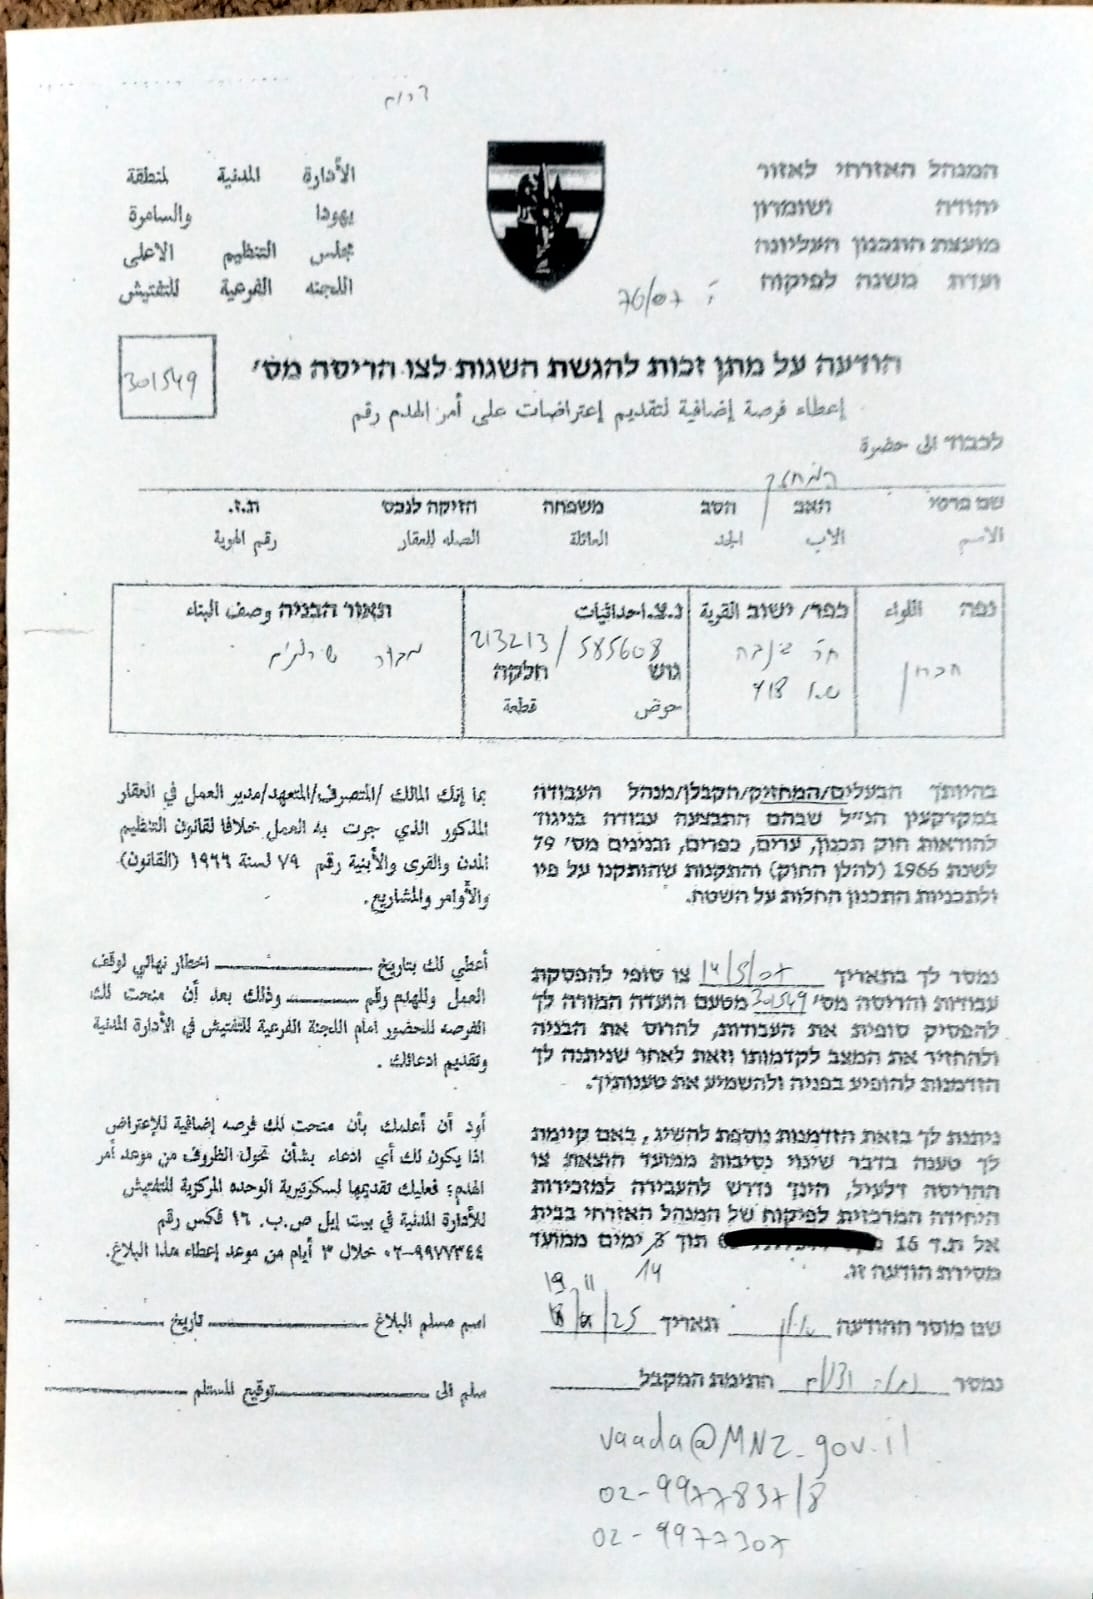 דרום
המנהל האזרחי לאזור
יהודה ושומרון
מועצת התכנון העליונה
ועדת משנה לפיקוח
الأدارة المدنية لمنطقة
يهودا والسامرة
مجلس التنظيم الاعلى
اللجنه الفرعية للتفتيش
76/07
הודעה על מתן זכות להגשת השגות לצו הריסה מס׳
301549
إعطاء فرصة إضافية لتقديم إعتراضات على أمر الهدم رقم
לכבוד الى حضرة
המחזיק
שם פרטי האב הסב משפחה הזיקה לנכס ת.ז.
الاسم الأب الجد العائلة الصله للعقار رقم الهوية
נפה اللواء
חברון
כפר/ ישוב القرية
ח׳ ג׳נבה
ש.א 918
נ.צ. احداثيات
213213 / 585608
גוש חלקה
حوض قطعة
תאור הבניה وصف البناء
בהיותך הבעלים/המחזיק/הקבלן/מנהל העבודה
במקרקעין הנ״ל שבהם התבצעה עבודה בניגוד
להוראות חוק תכנון, ערים, כפרים, ובנינים מס׳ 79
לשנת 1966 (להלן החוק) והתקנות שהותקנו על פיו
ולתכניות התכנון החלות על השטח.
بما إنك المالك /المتصرف/المتعهد/مدير العمل في العقار
المذكور الذي جرت به العمل خلافا لقانون التنظيم
المدن والقرى والأبنية رقم ٧٩ لسنة ١٩٦٦ (القانون)
والأوامر والمشاريع.
נמסר לך בתאריך 14/5/07 צו סופי להפסקת
עבודות והריסה מס׳ 301549 מטעם הועדה המורה לך
להפסיק סופית את העבודות, להרוס את הבניה
ולהחזיר את המצב לקדמותו וזאת לאחר שניתנה לך
הזדמנות להופיע בפניה ולהשמיע את טענותיך.
أعطي لك بتاريخ اخطار نهائي لوقف
العمل وللهدم رقم وذلك بعد أن منحت لك
الفرصه للحضور امام اللجنة الفرعية للتفتيش في الأدارة المدنية
وتقديم ادعائك .
ניתנת לך בזאת הזדמנות נוספת להשיג , באם קיימת
לך טענה בדבר שינוי נסיבות ממועד הוצאת צו
ההריסה דלעיל, הינך נדרש להעבירה למזכירות
היחידה המרכזית לפיקוח של המנהל האזרחי בבית
אל ת.ד 16 תוך 3 ימים ממועד
14
מסירת הודעה זו.
أود أن أعلمك بأن منحت لك فرصه إضافية للإعتراض
اذا يكون لك أي ادعاء بشأن تحول الظروف من موعد أمر
الهدم؛ فعليك تقديمها لسكوتيرية الوحده المركزية للتفتيش
للأدارة المدنية في بيت إيل ص.ب. ١٦ فكس رقم
٩٩٧٧٣٤٤-٠٢ خلال ٣ أيام من موعد إعطاء هذا البلاغ.
19 11
שם מוסר ההודעה אילן תאריך 25
اسم مسلم البلاغ تاريخ
נמסר חתימת המקבל
سلم الى توقيع المستلم
vaada@MNZ.gov.il
02-9977837/8
02-9977307